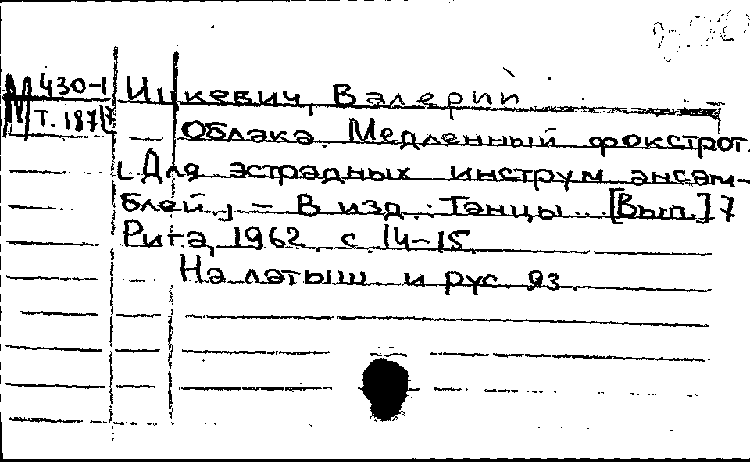 М 430-1 Ицкевич, Валерий
Т. 187
Облака. Медленный фокстрот.
[Для эстрадных инструм. ансам-
блей.] – В изд.: Танцы... [Вып.] 7
Рига, 1962, с. 14-15.
На латыш. и рус. яз.